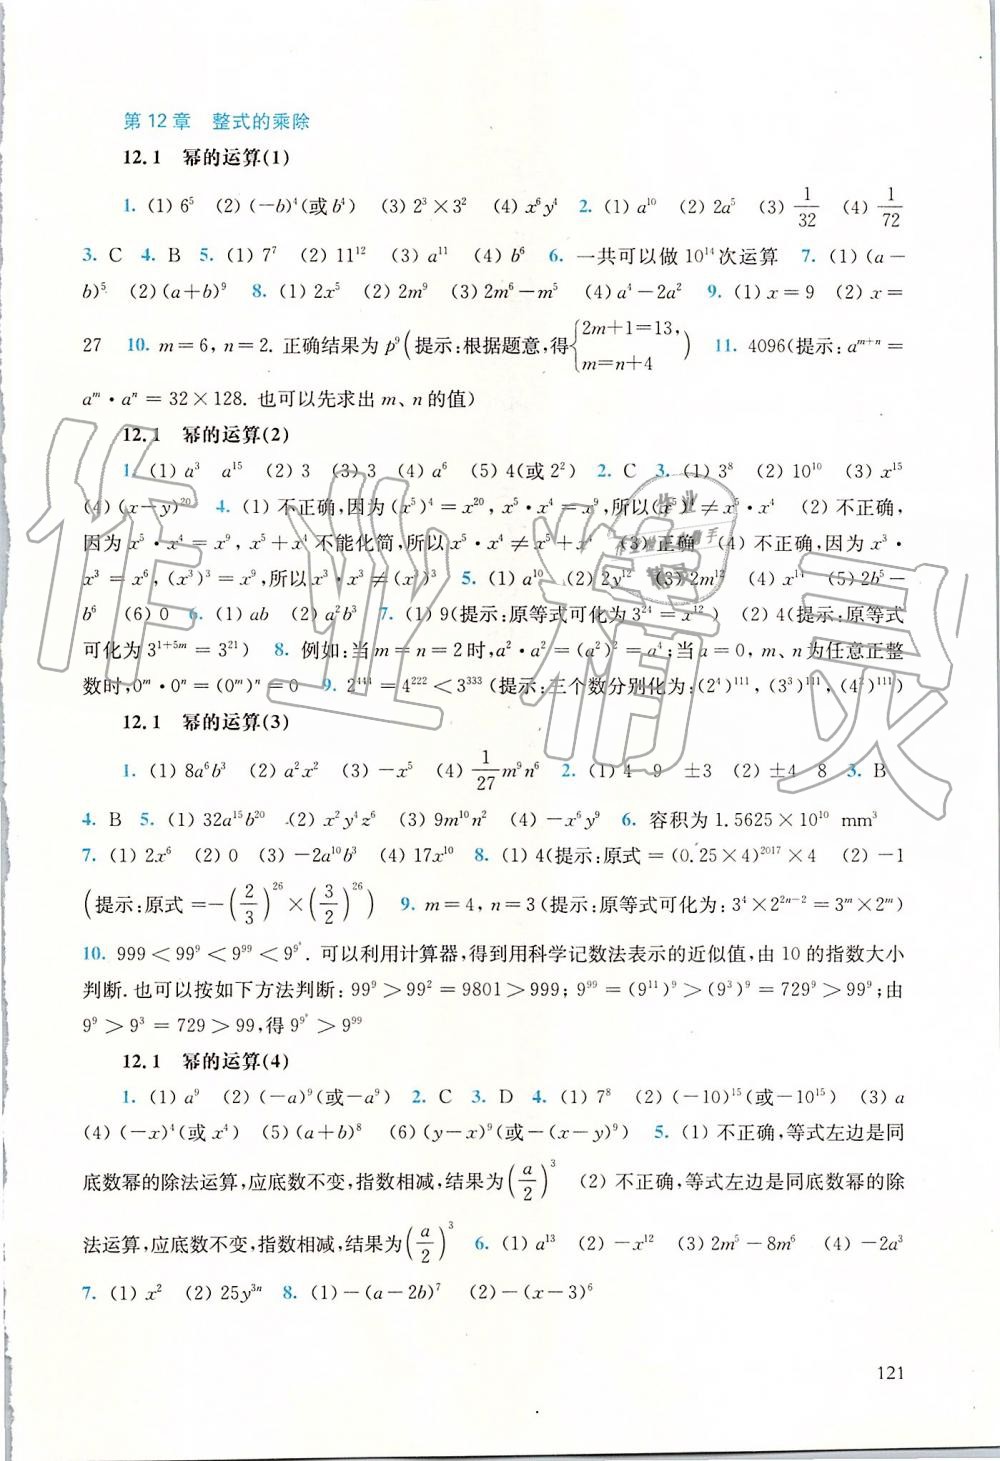 第12章　整式的乘除
12.1　幂的运算(1)
1. (1) 6⁵　(2) (－b)⁴(或b⁴)　(3) 2³×3²　(4) x⁶y⁴　2. (1) a¹⁰　(2) 2a⁵　(3) 1/32　(4) 1/72
3. C　4. B　5. (1) 7⁷　(2) 11¹²　(3) a¹¹　(4) b⁶　6. 一共可以做10¹⁴次运算　7. (1) (a－
b)⁵　(2) (a＋b)⁹　8. (1) 2x⁵　(2) 2m⁹　(3) 2m⁶－m⁵　(4) a⁴－2a²　9. (1) x＝9　(2) x＝
27　10. m＝6, n＝2. 正确结果为p⁹(提示:根据题意,得{2m＋1＝13, m＝n＋4)　11. 4096(提示: aᵐ⁺ⁿ＝
aᵐ·aⁿ＝32×128. 也可以先求出m、n的值)
12.1　幂的运算(2)
1. (1) a³　a¹⁵　(2) 3　(3) 3　(4) a⁶　(5) 4(或2²)　2. C　3. (1) 3⁸　(2) 10¹⁰　(3) x¹⁵
(4) (x－y)²⁰　4. (1) 不正确,因为(x⁵)⁴＝x²⁰, x⁵·x⁴＝x⁹,所以(x⁵)⁴≠x⁵·x⁴　(2) 不正确,
因为x⁵·x⁴＝x⁹, x⁵＋x⁴不能化简,所以x⁵·x⁴≠x⁵＋x⁴　(3) 正确　(4) 不正确,因为x³·
x³＝x⁶, (x³)³＝x⁹,所以x³·x³≠(x³)³　5. (1) a¹⁰　(2) 2y¹²　(3) 2m¹²　(4) x¹⁴　(5) 2b⁵－
b⁶　(6) 0　6. (1) ab　(2) a²b³　7. (1) 9(提示:原等式可化为3²⁴＝x¹²)　(2) 4(提示:原等式
可化为3¹⁺⁵ᵐ＝3²¹)　8. 例如:当m＝n＝2时,a²·a²＝(a²)²＝a⁴;当a＝0, m、n为任意正整
数时,0ᵐ·0ⁿ＝(0ᵐ)ⁿ＝0　9. 2⁴⁴⁴＝4²²²＜3³³³(提示:三个数分别化为:(2⁴)¹¹¹, (3³)¹¹¹, (4²)¹¹¹)
12.1　幂的运算(3)
1. (1) 8a⁶b³　(2) a²x²　(3) －x⁵　(4) 1/27 m⁹n⁶　2. (1) 4　9　±3　(2) ±4　8　3. B
4. B　5. (1) 32a¹⁵b²⁰　(2) x²y⁴z⁶　(3) 9m¹⁰n²　(4) －x⁶y⁹　6. 容积为1.5625×10¹⁰ mm³
7. (1) 2x⁶　(2) 0　(3) －2a¹⁰b³　(4) 17x¹⁰　8. (1) 4(提示:原式＝(0.25×4)²⁰¹⁷×4　(2) －1
(提示:原式＝－(2/3)²⁶×(3/2)²⁶)　9. m＝4, n＝3(提示:原等式可化为:3⁴×2²ⁿ⁻²＝3ᵐ×2ᵐ)
10. 999＜99⁹＜9⁹⁹＜9^(9⁹). 可以利用计算器,得到用科学记数法表示的近似值,由10的指数大小
判断.也可以按如下方法判断: 99⁹＞99²＝9801＞999; 9⁹⁹＝(9¹¹)⁹＞(9³)⁹＝729⁹＞99⁹;由
9⁹＞9³＝729＞99,得9^(9⁹)＞9⁹⁹
12.1　幂的运算(4)
1. (1) a⁹　(2) (－a)⁹(或－a⁹)　2. C　3. D　4. (1) 7⁸　(2) (－10)¹⁵(或－10¹⁵)　(3) a
(4) (－x)⁴(或x⁴)　(5) (a＋b)⁸　(6) (y－x)⁹(或－(x－y)⁹)　5. (1) 不正确,等式左边是同
底数幂的除法运算,应底数不变,指数相减,结果为(a/2)³　(2) 不正确,等式左边是同底数幂的除
法运算,应底数不变,指数相减,结果为(a/2)³　6. (1) a¹³　(2) －x¹²　(3) 2m⁵－8m⁶　(4) －2a³
7. (1) x²　(2) 25y³ⁿ　8. (1) －(a－2b)⁷　(2) －(x－3)⁶
121
作业精灵